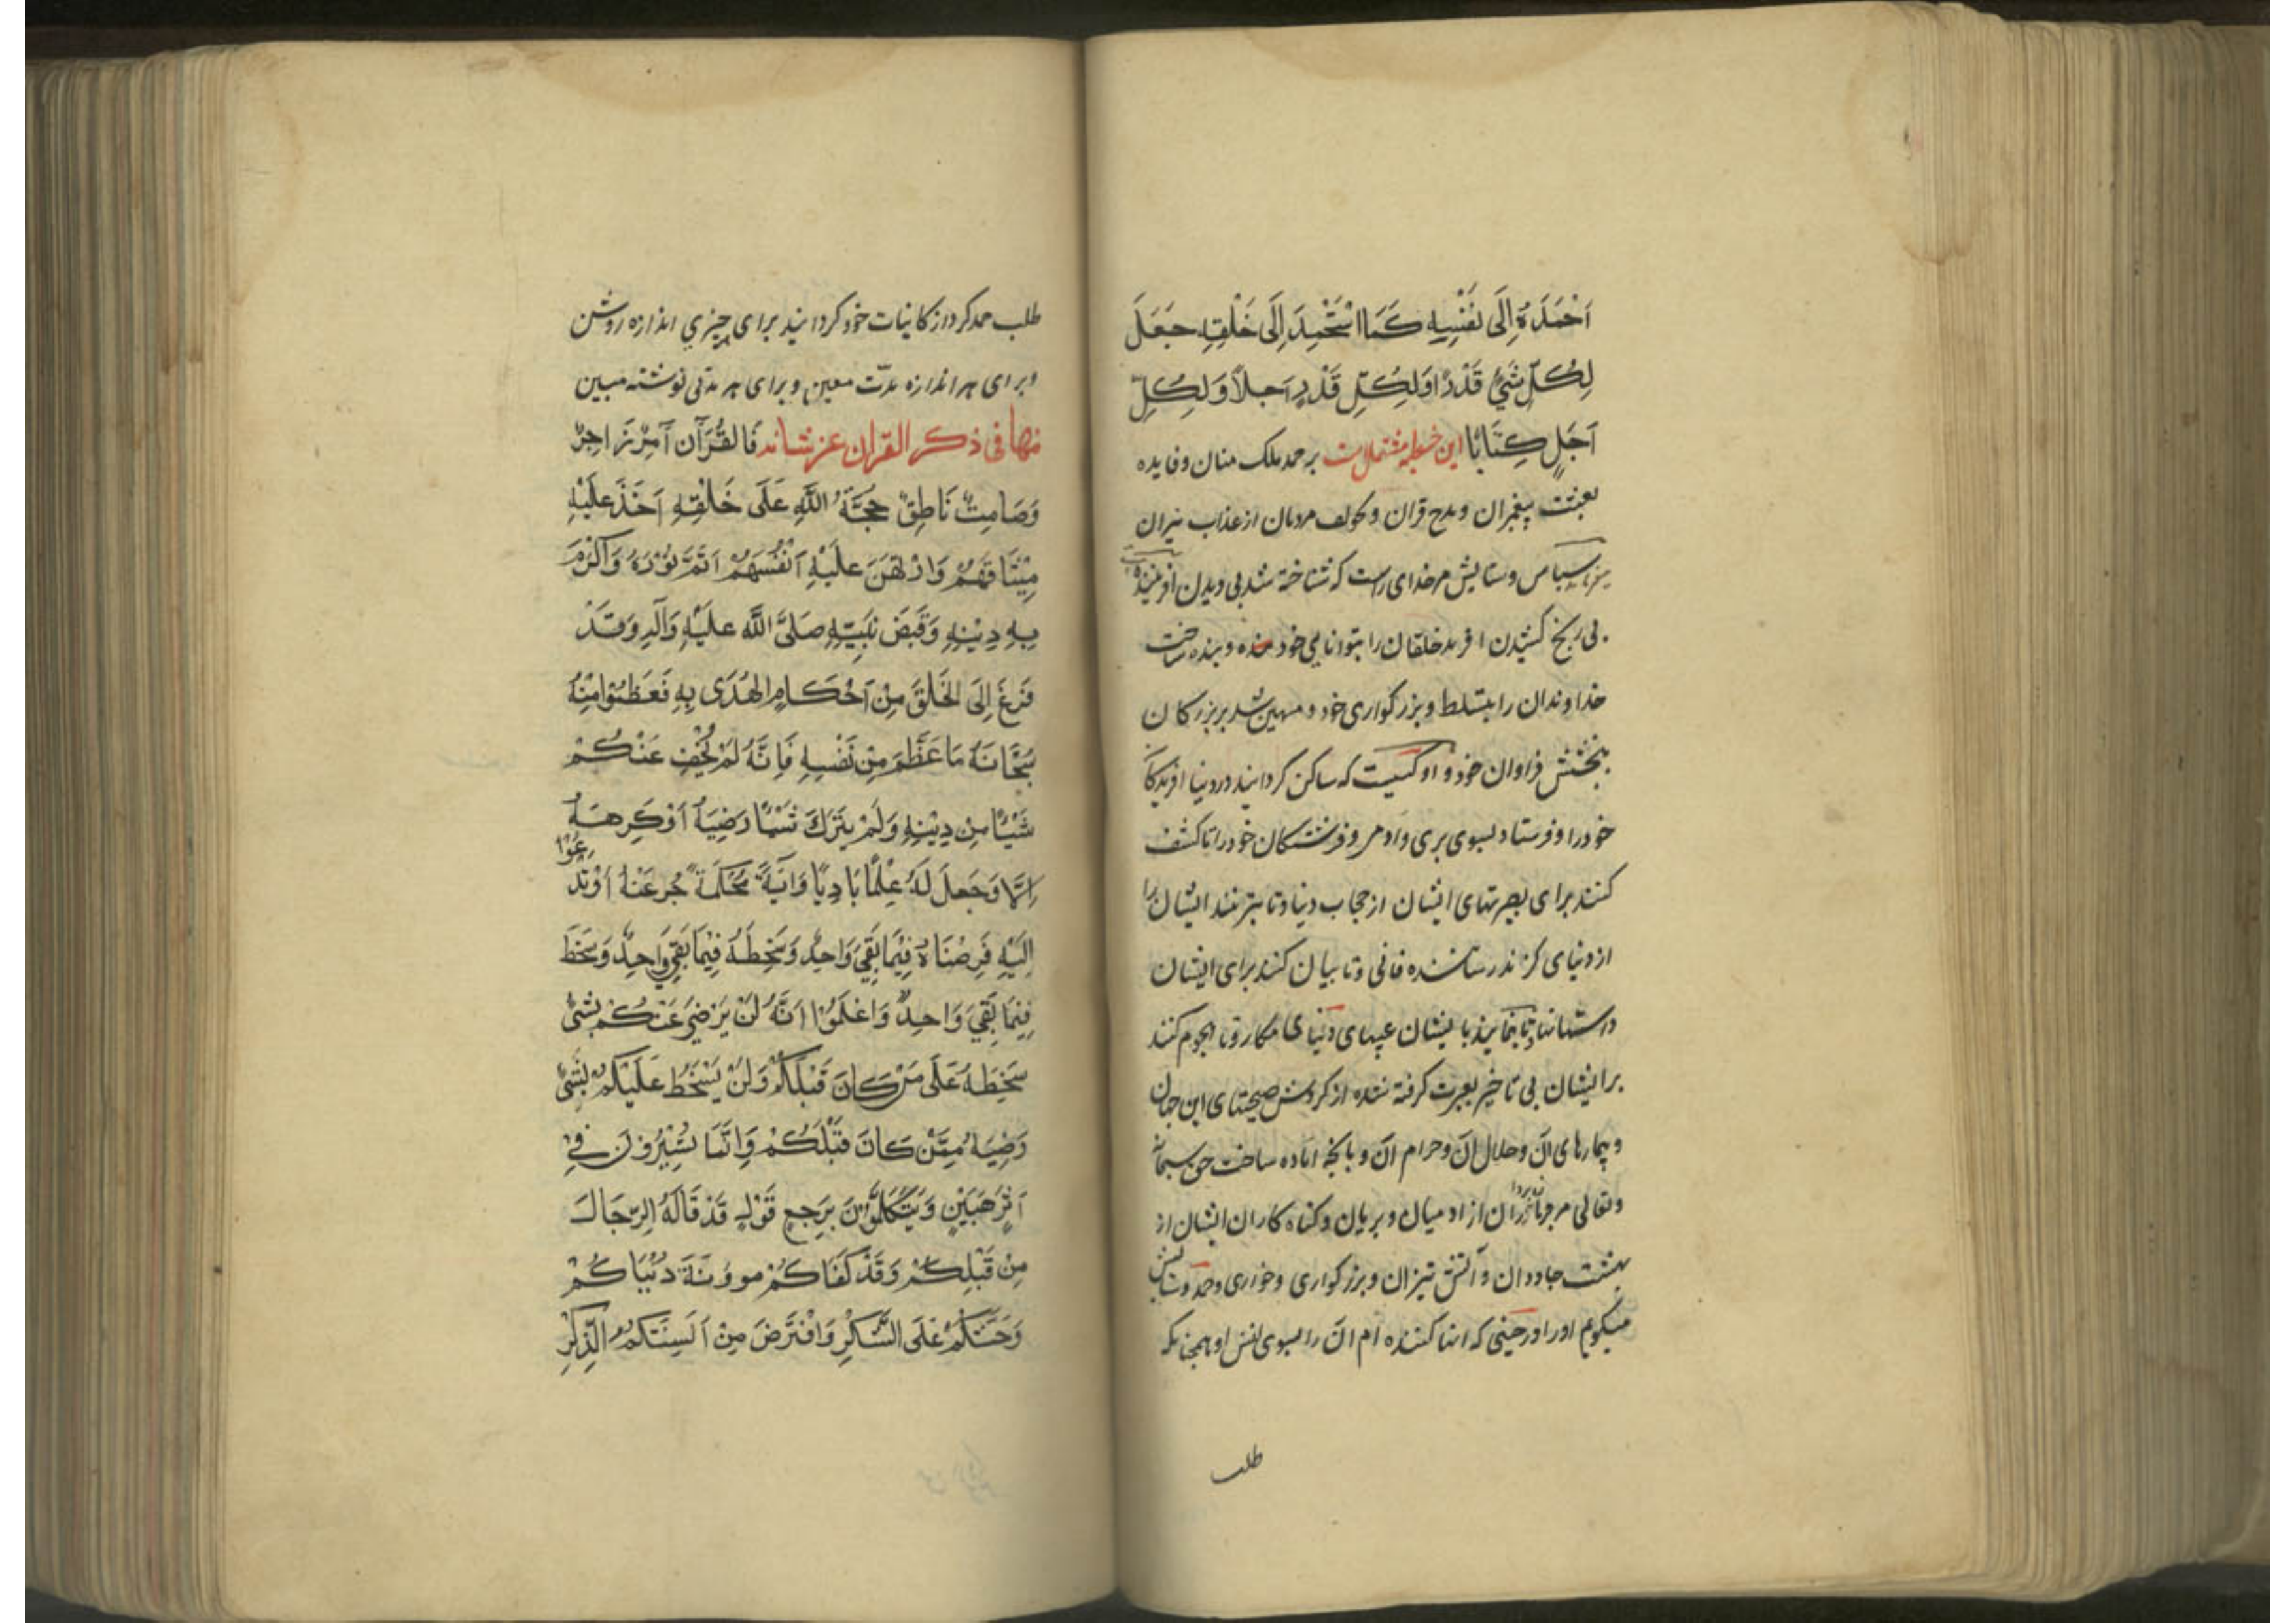 اَحْمَدُهُ اِلَى نَفْسِهِ كَمَا اسْتَحْمَدَ اِلَى خَلْقِهِ جَعَلَ
لِكُلِّ شَيْءٍ قَدْرًا وَلِكُلِّ قَدْرٍ اَجَلاً وَلِكُلِّ
اَجَلٍ كِتَابًا این خطبه مشتملست بر حمد ملک منان و فایده
بعثت پیغمبران و مدح قران و مردمان از عذاب نیران
سپاس و ستایش مر خدای راست که شناخته شد بی دیدن افریننده
بی رنج کشیدن افرید خلقان را بتوانایی خود و بنده ساخت
خداوندان را بتسلط و بزرگواری خود و مهین شد بر بزرگان
ببخشش فراوان خود و او کسیست که ساکن گردانید در دنیا افریدگان
خود را و فرستاد بسوی پری و ادمی فرشتگان خود را تا کشف
کنند برای بصیرتهای ایشان از حجاب دنیا و تا بترسنند ایشان را
از دنیای گزند رساننده فانی و تا بیان کنند برای ایشان
داستانها و تا بنمایند بایشان عیبهای دنیای مکار و تا هجوم کنند
برایشان بی تاخیر بعبرت گرفته شده از گردش صحتهای این جهان
و بیمارهای آن و حلال آن و حرام آن و بانچه اماده ساخت حق سبحانه
و تعالی مر فرمان بردارن از ادمیان و پریان و گناه کاران ایشان از
بهشت جاودان و آتش نیران و بزرگواری و خواری و حمد و ستایش
میگویم او را در حینی که انها کننده ام آن را بسوی نفس او همچنانکه
طلب
طلب حمد کرد از کائنات خود گردانید برای چیزی اندازه روشن
و برای هر اندازه مدّت معین و برای هر مدتی نوشته مبین
منها فی ذکر القران عز شانه فَالْقُرْآنُ آمِرٌ زَاجِرٌ
وَصَامِتٌ نَاطِقٌ حُجَّةُ اللَّهِ عَلَى خَلْقِهِ اَخَذَ عَلَيْهِ
مِيْثَاقَهُمْ وَارْتَهَنَ عَلَيْهِ اَنْفُسَهُمْ اَتَمَّ نُوْرَهُ وَاَكْرَمَ
بِهِ دِيْنَهِ وَقَبَضَ نَبِيَّهِ صَلَّى اللَّه عَلَيْهِ وَآلِهِ وَقَدْ
فَرَغَ اِلَى الْخَلْقِ مِنْ اَحْكَامِ الْهُدَى بِهِ فَعَظِّمُوا مِنْهُ
سُبْحَانَهُ مَا عَظَّمَ مِنْ نَفْسِهِ فَاِنَّهُ لَمْ يُخْفِ عَنْكُمْ
شَيْئًا مِنْ دِيْنِهِ وَلَمْ يَتْرُكْ شَيْئًا رَضِيَهُ اَوْ كَرِهَهُ
اِلَّا وَجَعَلَ لَهُ عَلَمًا بَادِيًا وَآيَةً مُحْكَمَةً تَزْجُرُ عَنْهُ اَوْ تَدْعُوْا
اِلَيْهِ فَرِضَاهُ فِيْمَا بَقِيَ وَاحِدٌ وَسَخَطُهُ فِيْمَا بَقِيَ وَاحِدٌ وَسَخَطَ
فِيْمَا بَقِيَ وَاحِدٌ وَاعْلَمُوْا اَنَّهُ لَنْ يَرْضَى عَنْكُمْ بِشَيْءٍ
سَخِطَهُ عَلَى مَنْ كَانَ قَبْلَكُمْ وَلَنْ يَسْخَطَ عَلَيْكُمْ بِشَيْءٍ
رَضِيَهُ مِمَّنْ كَانَ قَبْلَكُمْ وَاِنَّمَا تَسِيْرُوْنَ فِي
اَثَرٍ بَيِّنٍ وَتَتَكَلَّمُوْنَ بِرَجْعِ قَوْلٍ قَدْ قَالَهُ الرِّجَالُ
مِنْ قَبْلِكُمْ وَقَدْ كَفَاكُمْ موونَةَ دُنْيَاكُمْ
وَحَثَّكُمْ عَلَى الشُّكْرِ وَافْتَرَضَ مِنْ اَلْسِنَتِكُمُ الذِّكْرَ